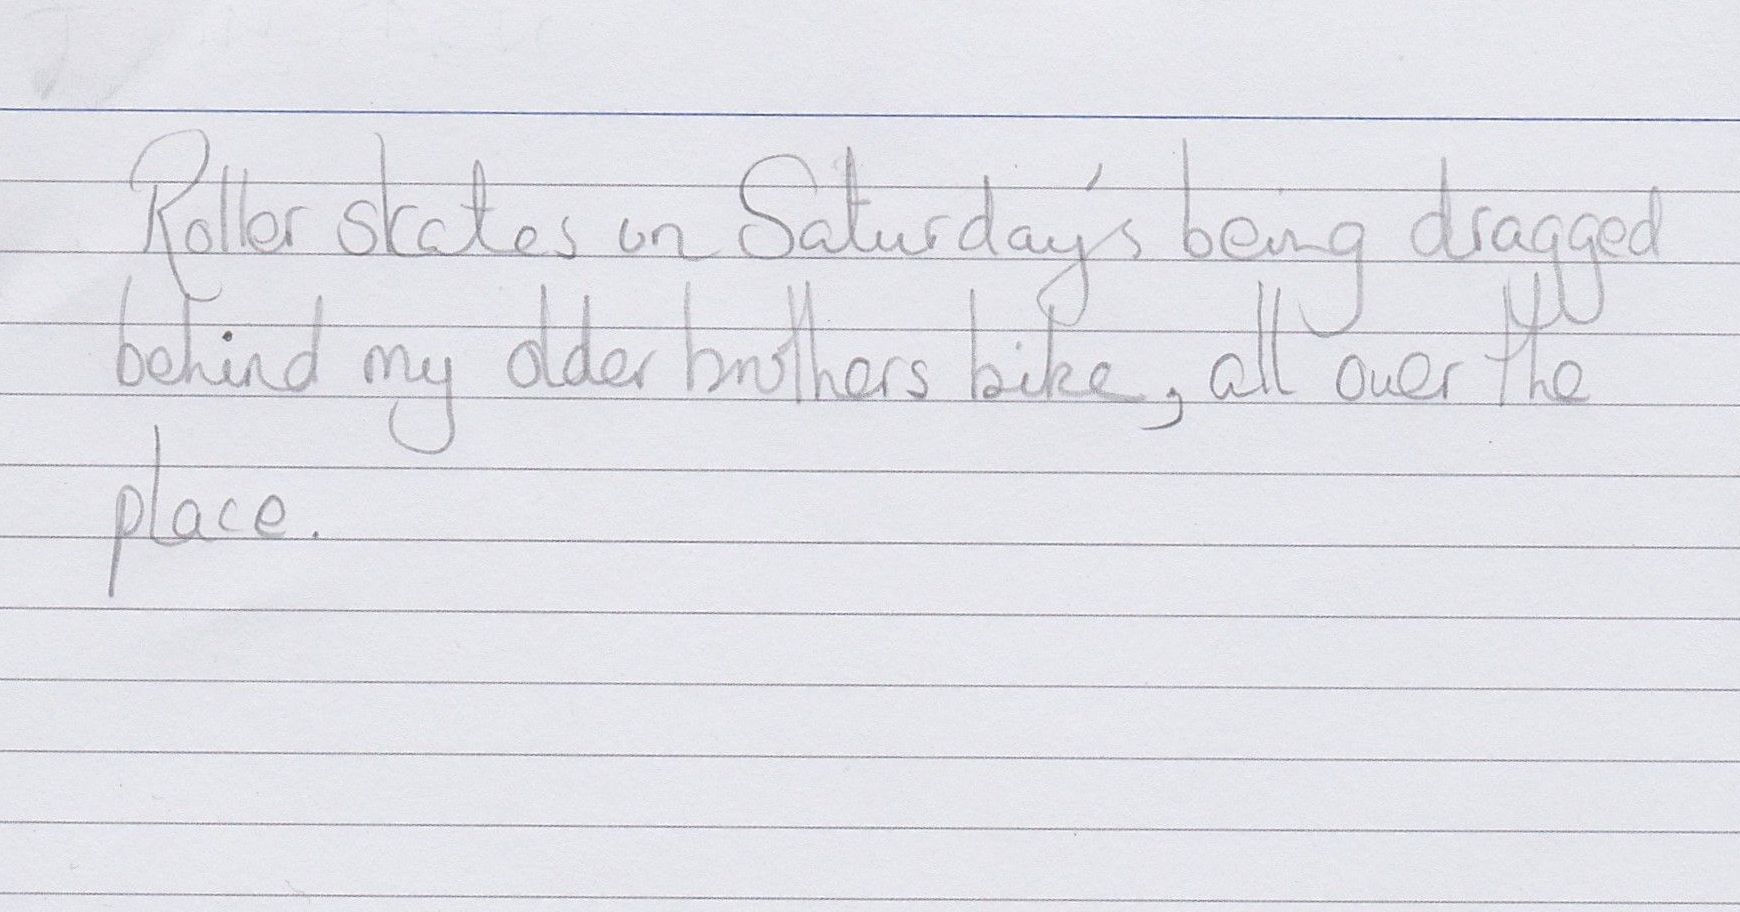 Roller skates on Saturday's being dragged
behind my older brothers bike, all over the
place.